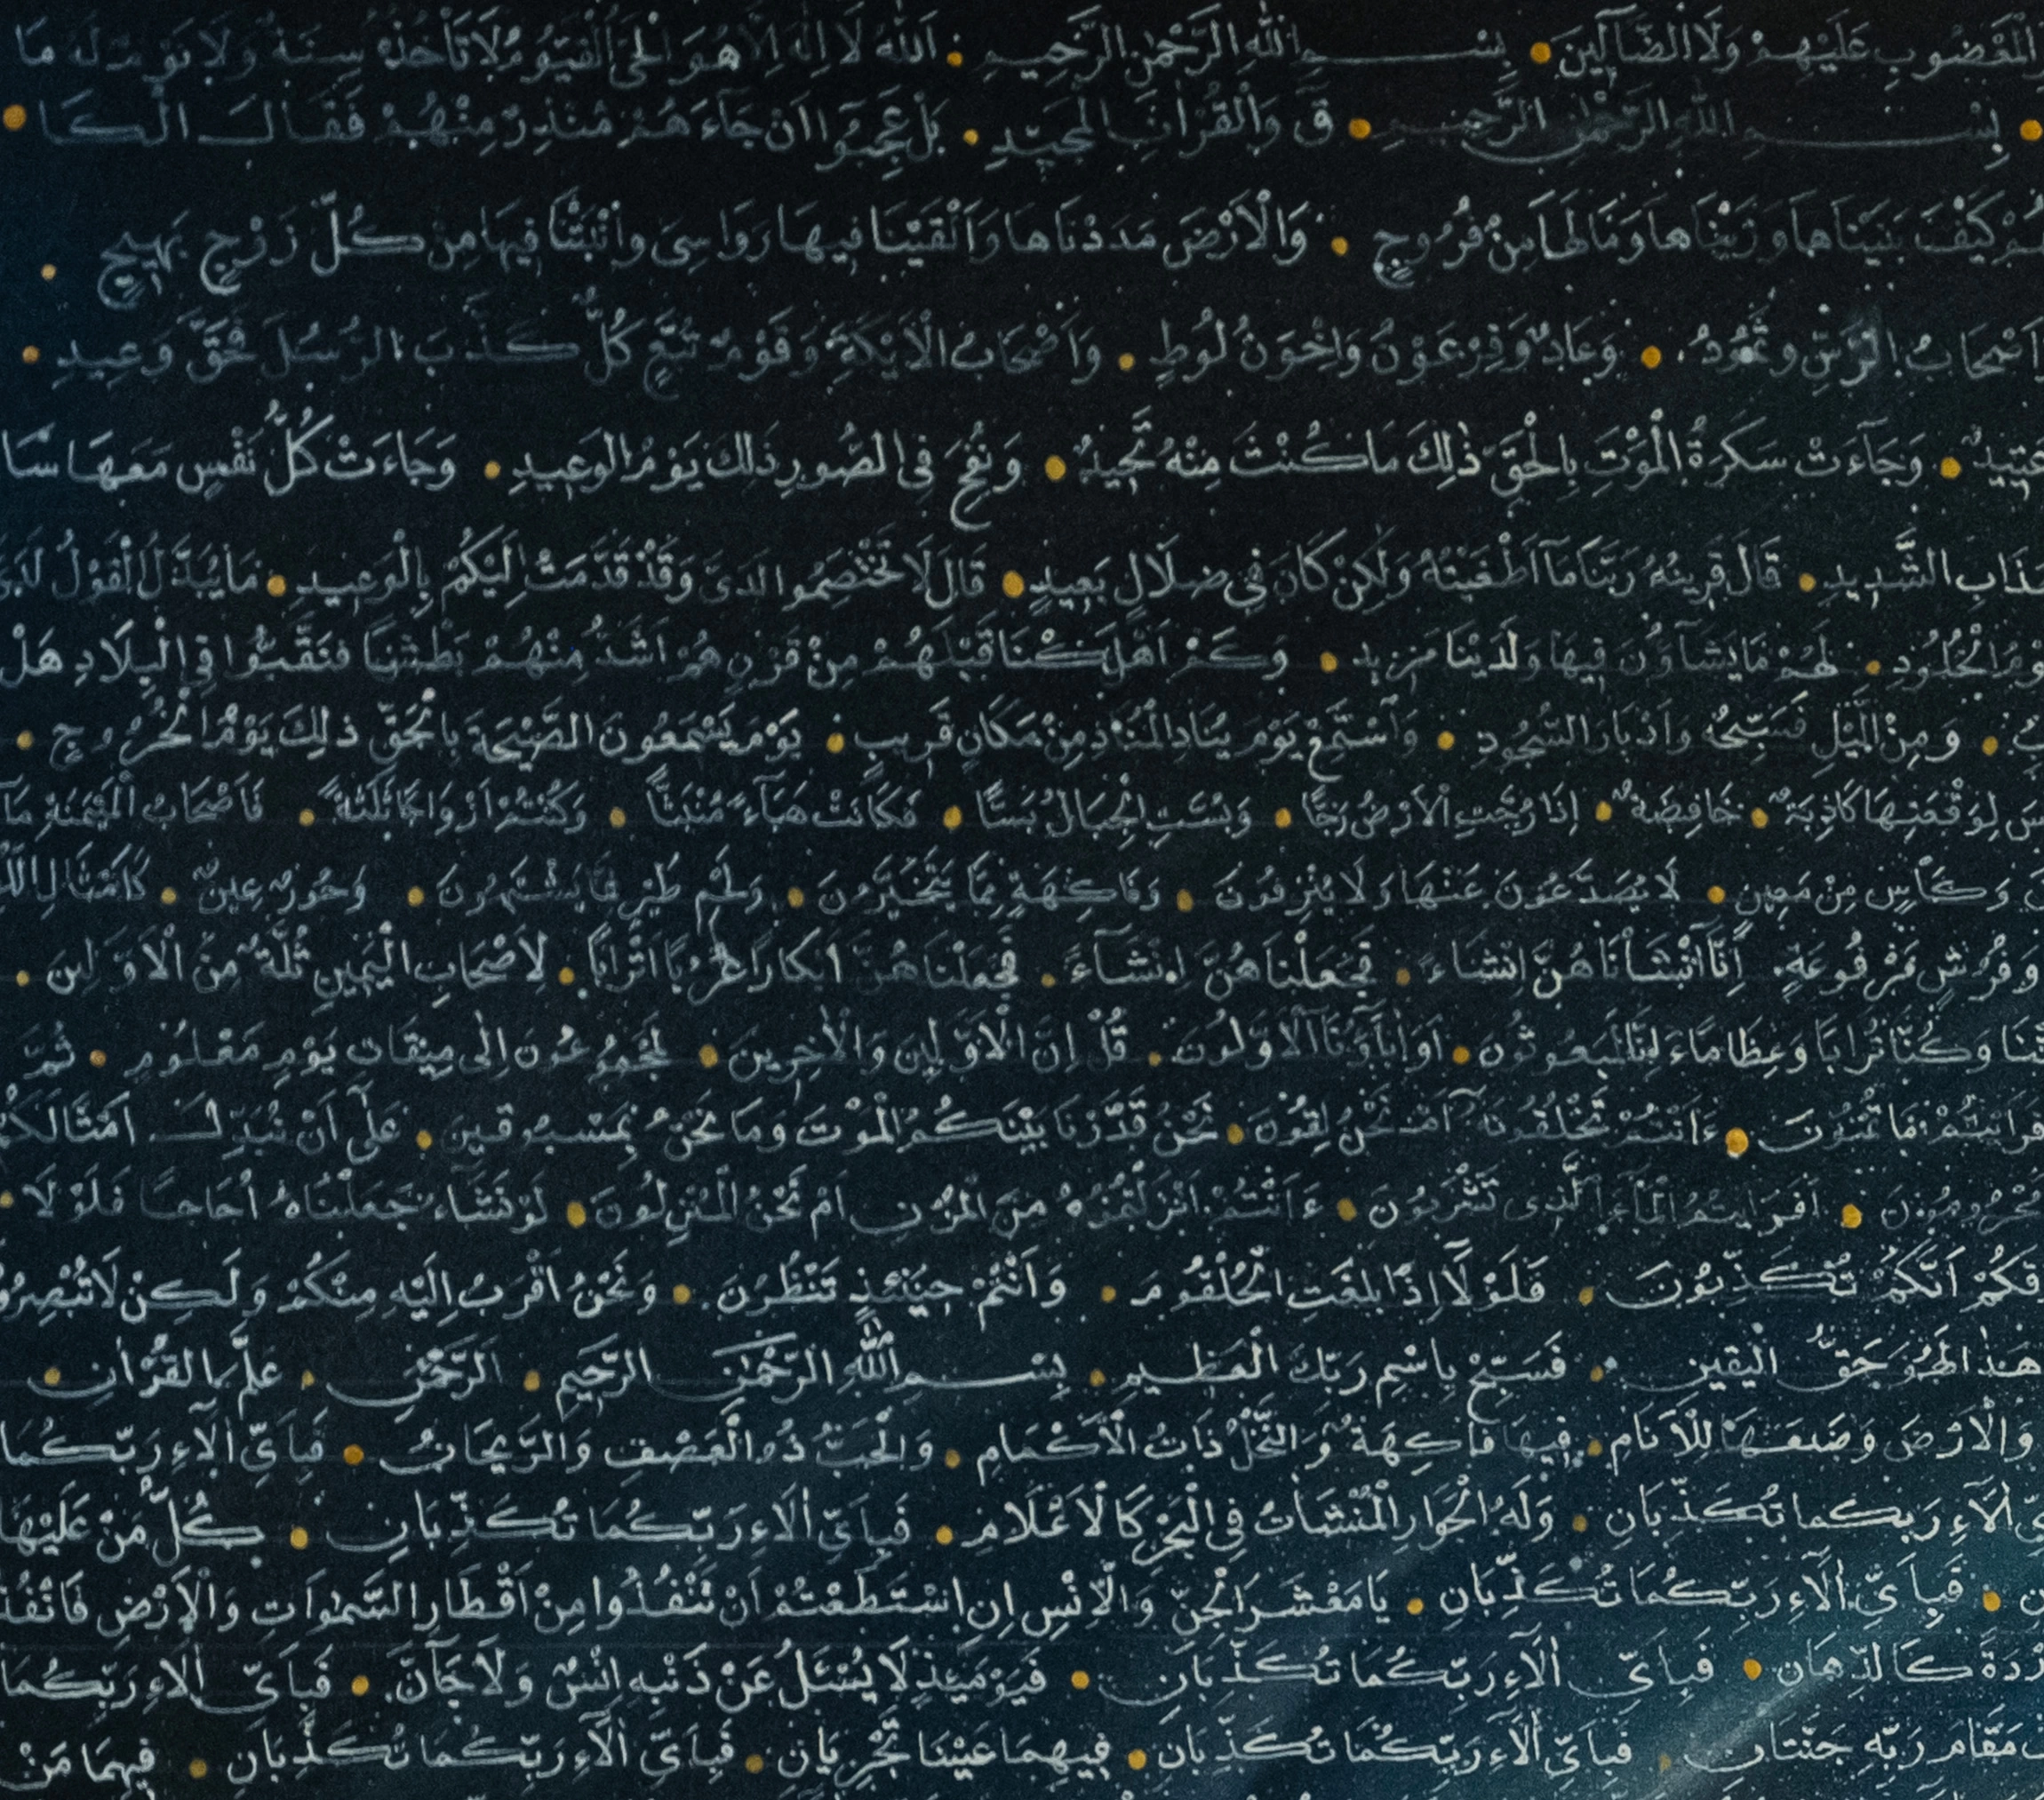 الْمَغْضُوبِ عَلَيْهِمْ وَلَا الضَّآلِّينَ • بِسْمِ اللهِ الرَّحْمٰنِ الرَّحِيمِ • اَللهُ لَا اِلٰهَ اِلَّا هُوَ الْحَىُّ الْقَيُّومُ لَا تَأْخُذُهُ سِنَةٌ وَلَا نَوْمٌ لَهُ مَا
• بِسْمِ اللهِ الرَّحْمٰنِ الرَّحِيمِ • قٓ وَالْقُرْاٰنِ الْمَجِيدِ • بَلْ عَجِبُوٓا اَنْ جَآءَهُمْ مُنْذِرٌ مِنْهُمْ فَقَالَ الْكَا •
كَيْفَ بَنَيْنَاهَا وَزَيَّنَّاهَا وَمَا لَهَا مِنْ فُرُوجٍ • وَالْاَرْضَ مَدَدْنَاهَا وَاَلْقَيْنَا فِيهَا رَوَاسِىَ وَاَنْبَتْنَا فِيهَا مِنْ كُلِّ زَوْجٍ بَهِيجٍ •
اَصْحَابُ الرَّسِّ وَثَمُودُ • وَعَادٌ وَفِرْعَوْنُ وَاِخْوَنُ لُوطٍ • وَاَصْحَابُ الْاَيْكَةِ وَقَوْمُ تُبَّعٍ كُلٌّ كَذَّبَ الرُّسُلَ فَحَقَّ وَعِيدِ •
عَتِيدٌ • وَجَآءَتْ سَكْرَةُ الْمَوْتِ بِالْحَقِّ ذٰلِكَ مَا كُنْتَ مِنْهُ تَحِيدُ • وَنُفِخَ فِى الصُّورِ ذٰلِكَ يَوْمُ الْوَعِيدِ • وَجَاءَتْ كُلُّ نَفْسٍ مَعَهَا سَا
الشَّدِيدِ • قَالَ قَرِينُهُ رَبَّنَا مَآ اَطْغَيْتُهُ وَلٰكِنْ كَانَ فِى ضَلَالٍ بَعِيدٍ • قَالَ لَا تَخْتَصِمُوا لَدَىَّ وَقَدْ قَدَّمْتُ اِلَيْكُمْ بِالْوَعِيدِ • مَا يُبَدَّلُ الْقَوْلُ لَدَىَّ
الْخُلُودِ • لَهُمْ مَا يَشَآؤُنَ فِيهَا وَلَدَيْنَا مَزِيدٌ • وَكَمْ اَهْلَكْنَا قَبْلَهُمْ مِنْ قَرْنٍ هُمْ اَشَدُّ مِنْهُمْ بَطْشًا فَنَقَّبُوا فِى الْبِلَادِ هَلْ
• وَمِنَ الَّيْلِ فَسَبِّحْهُ وَاَدْبَارَ السُّجُودِ • وَاسْتَمِعْ يَوْمَ يُنَادِ الْمُنَادِ مِنْ مَكَانٍ قَرِيبٍ • يَوْمَ يَسْمَعُونَ الصَّيْحَةَ بِالْحَقِّ ذٰلِكَ يَوْمُ الْخُرُوجِ •
لِوَقْعَتِهَا كَاذِبَةٌ • خَافِضَةٌ • اِذَا رُجَّتِ الْاَرْضُ رَجًّا • وَبُسَّتِ الْجِبَالُ بَسًّا • فَكَانَتْ هَبَآءً مُنْبَثًّا • وَكُنْتُمْ اَزْوَاجًا ثَلٰثَةً • فَاَصْحَابُ الْمَيْمَنَةِ مَآ
وَكَأْسٍ مِنْ مَعِينٍ • لَا يُصَدَّعُونَ عَنْهَا وَلَا يُنْزِفُونَ • وَفَاكِهَةٍ مِمَّا يَتَخَيَّرُونَ • وَلَحْمِ طَيْرٍ مِمَّا يَشْتَهُونَ • وَحُورٌ عِينٌ • كَاَمْثَالِ اللُّ
وَفُرُشٍ مَرْفُوعَةٍ • اِنَّآ اَنْشَأْنَاهُنَّ اِنْشَاءً • فَجَعَلْنَاهُنَّ اِنْشَآءً • فَجَعَلْنَاهُنَّ اَبْكَارًا عُرُبًا اَتْرَابًا • لِاَصْحَابِ الْيَمِينِ ثُلَّةٌ مِنَ الْاَوَّلِينَ •
وَكُنَّا تُرَابًا وَعِظَامًا ءَاِنَّا لَمَبْعُوثُونَ • اَوَاٰبَآؤُنَا الْاَوَّلُونَ • قُلْ اِنَّ الْاَوَّلِينَ وَالْاٰخِرِينَ • لَمَجْمُوعُونَ اِلٰى مِيقَاتِ يَوْمٍ مَعْلُومٍ • ثُمَّ
مَا تُمْنُونَ • ءَاَنْتُمْ تَخْلُقُونَهُ اَمْ نَحْنُ • نَحْنُ قَدَّرْنَا بَيْنَكُمُ الْمَوْتَ وَمَا نَحْنُ بِمَسْبُوقِينَ • عَلٰٓى اَنْ نُبَدِّلَ اَمْثَالَكُمْ
مَحْرُومُونَ • اَفَرَاَيْتُمُ الْمَآءَ الَّذِى تَشْرَبُونَ • ءَاَنْتُمْ اَنْزَلْتُمُوهُ مِنَ الْمُزْنِ اَمْ نَحْنُ الْمُنْزِلُونَ • لَوْ نَشَاءُ جَعَلْنَاهُ اُجَاجًا فَلَوْلَا •
اَنَّكُمْ تُكَذِّبُونَ • فَلَوْلَآ اِذَا بَلَغَتِ الْحُلْقُومَ • وَاَنْتُمْ حِينَئِذٍ تَنْظُرُونَ • وَنَحْنُ اَقْرَبُ اِلَيْهِ مِنْكُمْ وَلٰكِنْ لَا تُبْصِرُو
هٰذَا لَهُوَ حَقُّ الْيَقِينِ • فَسَبِّحْ بِاسْمِ رَبِّكَ الْعَظِيمِ • بِسْمِ اللهِ الرَّحْمٰنِ الرَّحِيمِ • اَلرَّحْمٰنُ • عَلَّمَ الْقُرْاٰنَ •
وَالْاَرْضَ وَضَعَهَا لِلْاَنَامِ • فِيهَا فَاكِهَةٌ وَالنَّخْلُ ذَاتُ الْاَكْمَامِ • وَالْحَبُّ ذُو الْعَصْفِ وَالرَّيْحَانُ • فَبِاَىِّ اٰلَآءِ رَبِّكُمَا
اٰلَآءِ رَبِّكُمَا تُكَذِّبَانِ • وَلَهُ الْجَوَارِ الْمُنْشَاٰتُ فِى الْبَحْرِ كَالْاَعْلَامِ • فَبِاَىِّ اٰلَآءِ رَبِّكُمَا تُكَذِّبَانِ • كُلُّ مَنْ عَلَيْهَا
• فَبِاَىِّ اٰلَآءِ رَبِّكُمَا تُكَذِّبَانِ • يَا مَعْشَرَ الْجِنِّ وَالْاِنْسِ اِنِ اسْتَطَعْتُمْ اَنْ تَنْفُذُوا مِنْ اَقْطَارِ السَّمٰوَاتِ وَالْاَرْضِ فَانْفُذُ
وَرْدَةً كَالدِّهَانِ • فَبِاَىِّ اٰلَآءِ رَبِّكُمَا تُكَذِّبَانِ • فَيَوْمَئِذٍ لَا يُسْـَٔلُ عَنْ ذَنْبِهِ اِنْسٌ وَلَا جَآنٌّ • فَبِاَىِّ اٰلَآءِ رَبِّكُمَا
مَقَامَ رَبِّهِ جَنَّتَانِ • فَبِاَىِّ اٰلَآءِ رَبِّكُمَا تُكَذِّبَانِ • فِيهِمَا عَيْنَانِ تَجْرِيَانِ • فَبِاَىِّ اٰلَآءِ رَبِّكُمَا تُكَذِّبَانِ • فِيهِمَا مِنْ